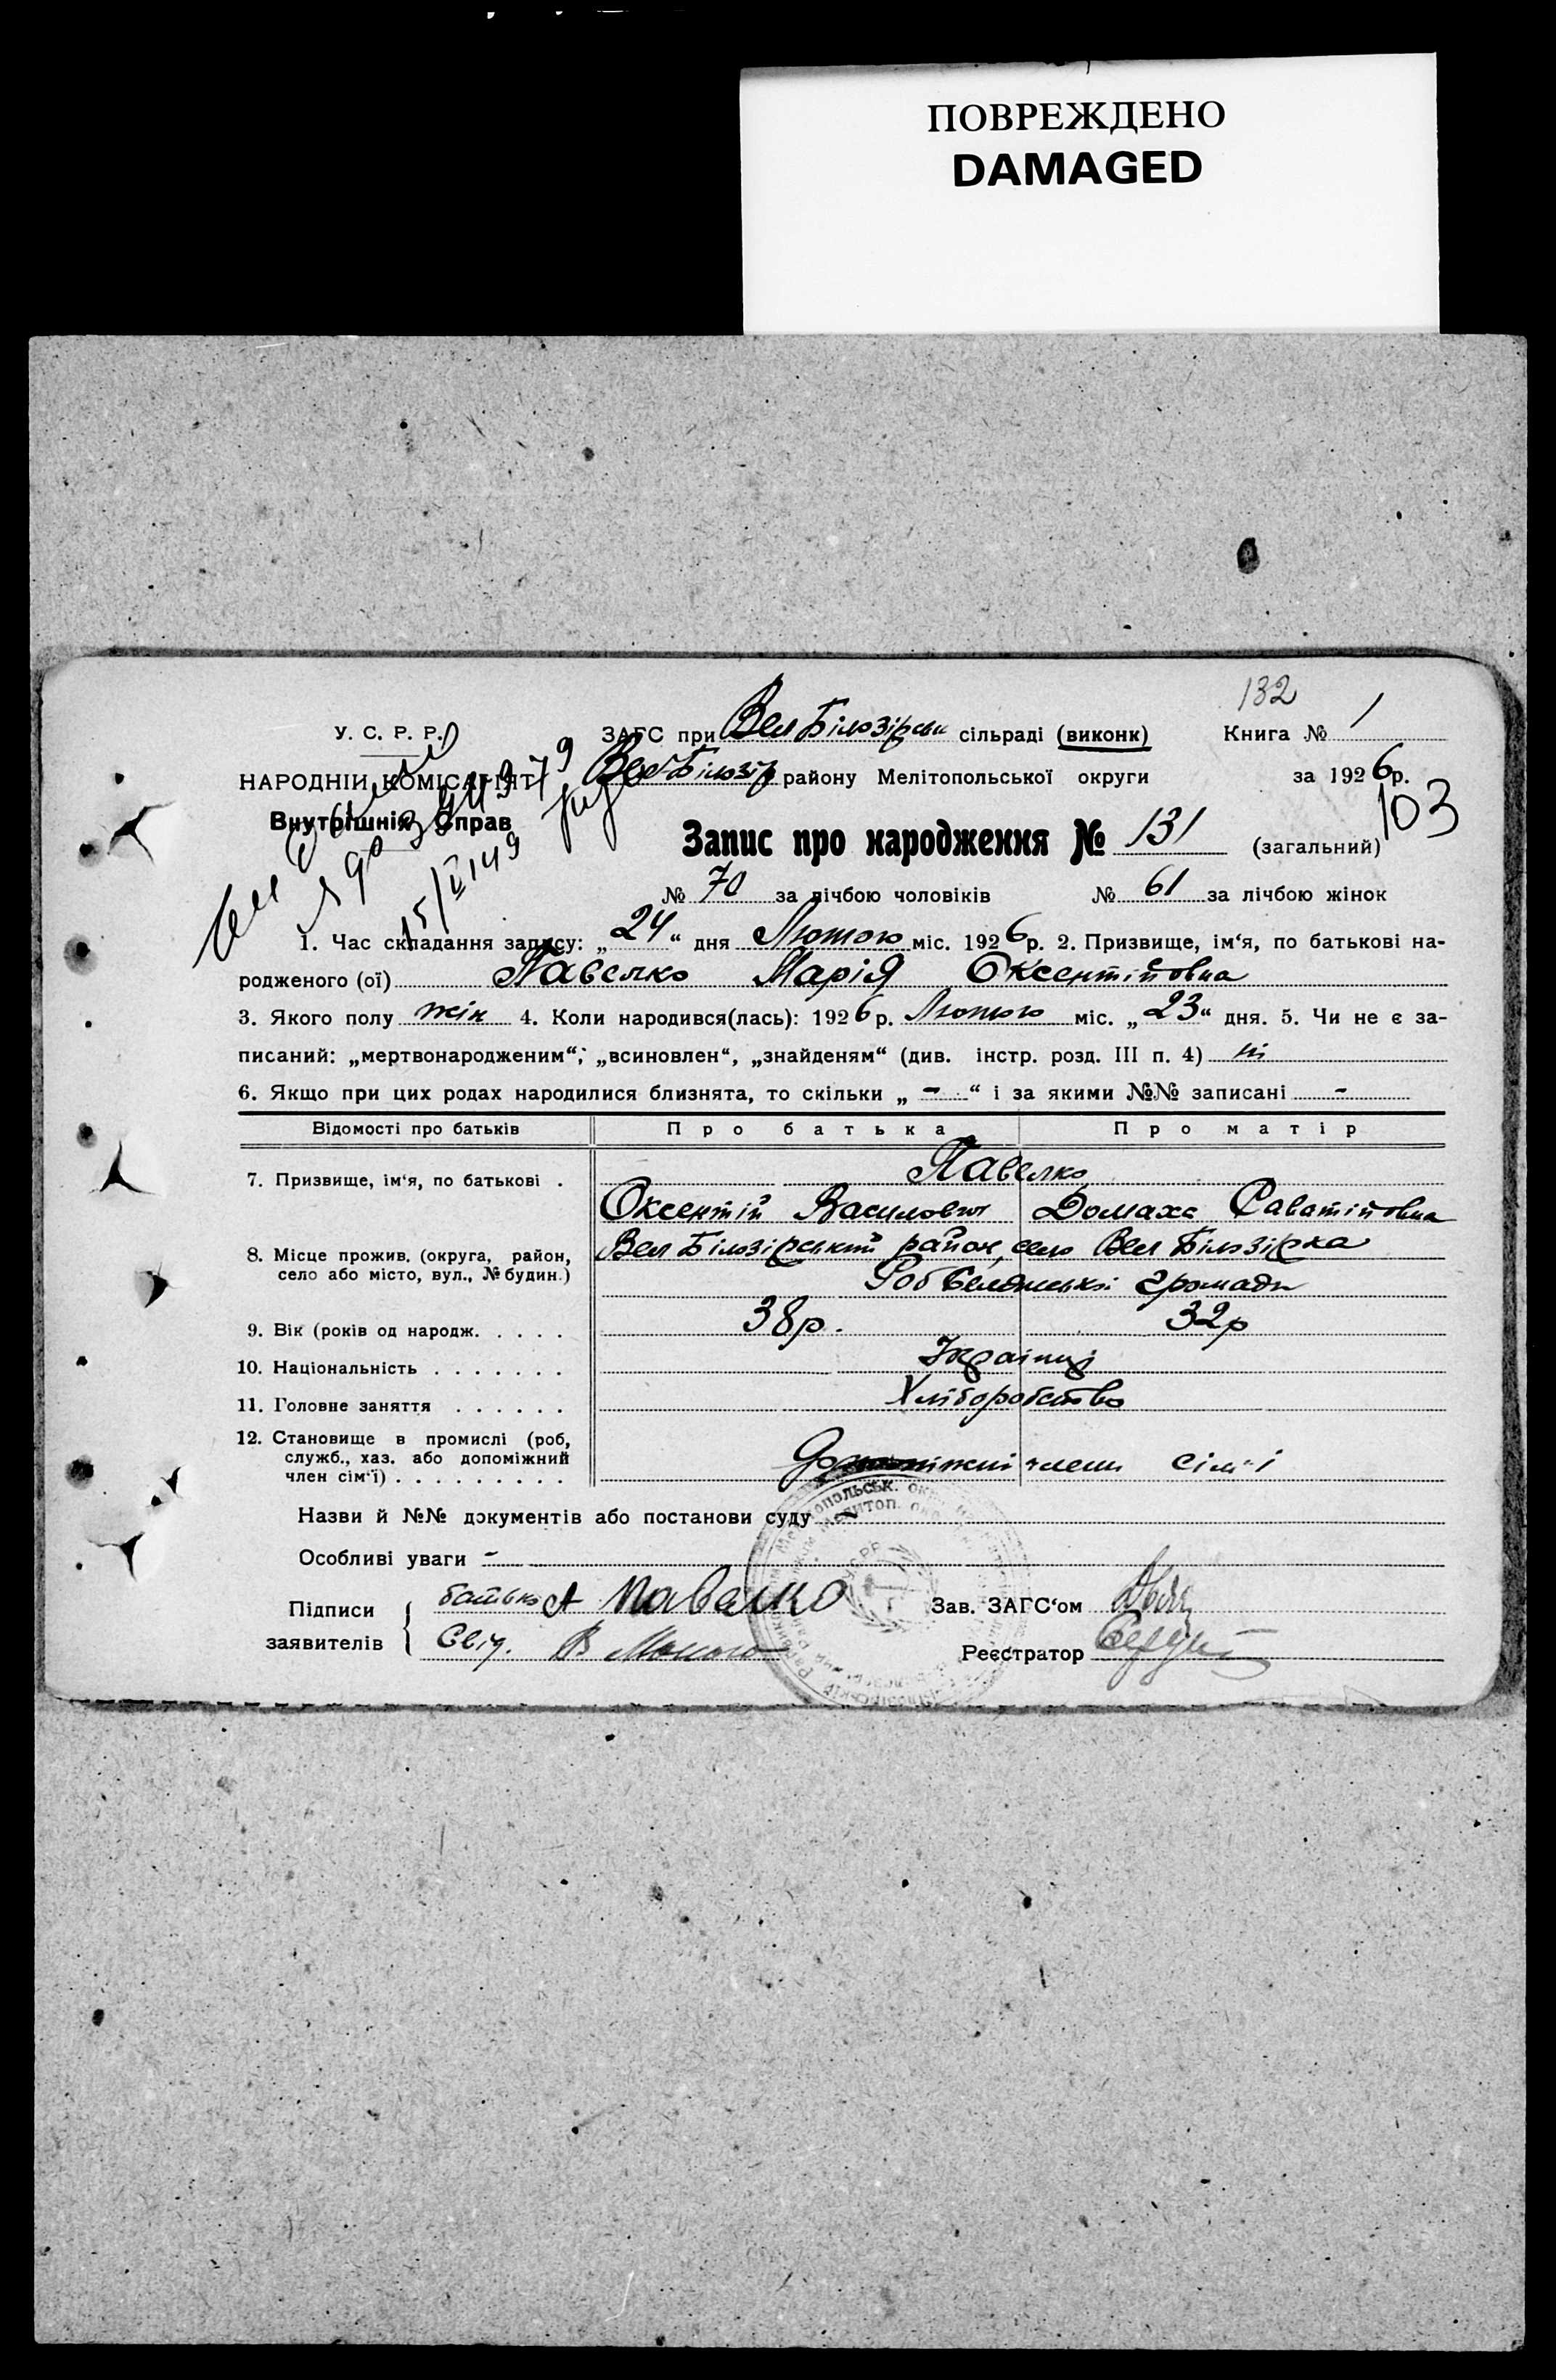 ПОВРЕЖДЕНО
DAMAGED
132
У. С. Р. Р.
ЗАГС при Вел Білозірськ сільраді (виконк) Книга № 1
НАРОДНІЙ КОМІСАРІЯТ Вел-Білозір району Мелітопольської округи за 1926 р.
Внутрішніх Справ
103
Запис про народження № 131 (загальний)
15/ІІ 149
№ 70 за лічбою чоловіків № 61 за лічбою жінок
1. Час складання запису: „24“ дня Лютого міс. 1926 р. 2. Призвище, ім‘я, по батькові на-
родженого (ої) Павелко Марія Оксентійовна
3. Якого полу жін 4. Коли народився(лась): 1926 р. Лютого міс. „23“ дня. 5. Чи не є за-
писаний: „мертвонародженим“, „всиновлен“, „знайденям“ (див. інстр. розд. III п. 4) ні
6. Якщо при цих родах народилися близнята, то скільки „ - “ і за якими №№ записані -
Відомості про батьків Про батька Про матір
Павелко
7. Призвище, ім‘я, по батькові .
Оксентій Василович Домаха Саватійовна
8. Місце прожив. (округа, район, Вел Білозірський район, село Вел Білозірка
село або місто, вул., № будин.)
громади
9. Вік (років од народж. . . . . 38р. 32р
10. Національність . . . . . . . Українці
11. Головне заняття . . . . . . Хліборобство
12. Становище в промислі (роб,
служб., хаз. або допоміжний члени сім‘ї
член сім‘ї) . . . . . . . . .
Назви й №№ документів або постанови суду -
Особливі уваги -
Підписи батько А Павелко Зав. ЗАГС‘ом
заявителів Свід. В Реєстратор